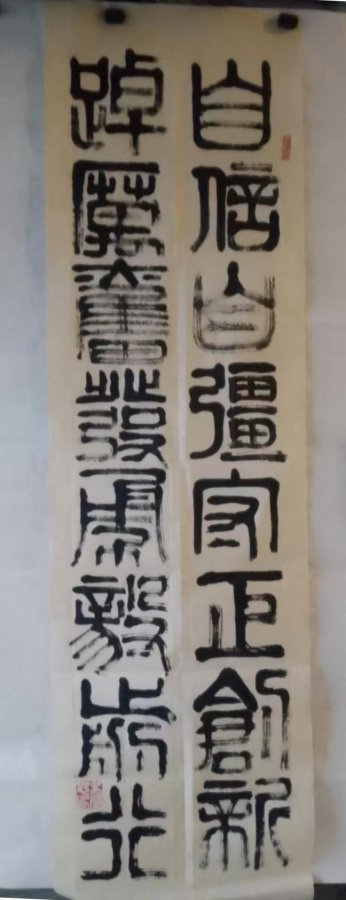 自信自彊守正創新
踔厲奮發勇毅前行